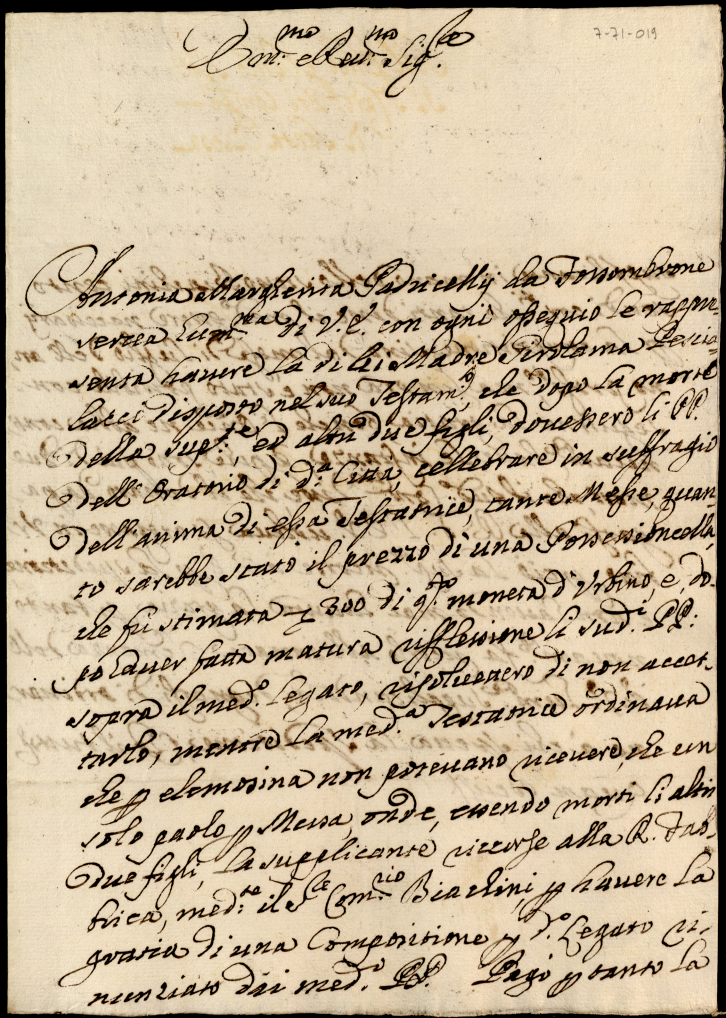 7-71-019
Em.mo e Rev.mo Sig.re
Antonia Margherita Padricelly da Fossombrone
serva hum.ma di V.E. con ogni ossequio le rappre-
senta havere la di lei Madre Girolama Pescia-
lacci disposto nel suo Testam.o, che dopo la morte
della sup.te, ed altri due figli, dovessero li PP.
dell'Oratorio di d.a Città, cellebrare in suffragio
dell'anima di essa Testatrice, tante Messe, quan-
to sarebbe stato il prezzo di una Possessioncella,
che fu stimata 300 di q.sta moneta d'Urbino, e, do-
po haver fatta matura riflessione li sud.i PP:
sopra il med.o Legato, risolverono di non accet-
tarlo, mentre la med.a Testatrice ordinava
che p elemosina non potevano ricevere, che un
solo paolo p Messa, onde, essendo morti li altri
due figli, la supplicante ricorse alla R. Fab-
brica, med.te il S.re Com.rio Biachini, p havere la
gratia di una Compositione p d.o Legato ri-
nunziato dai med.i PP. Pagò p tanto la